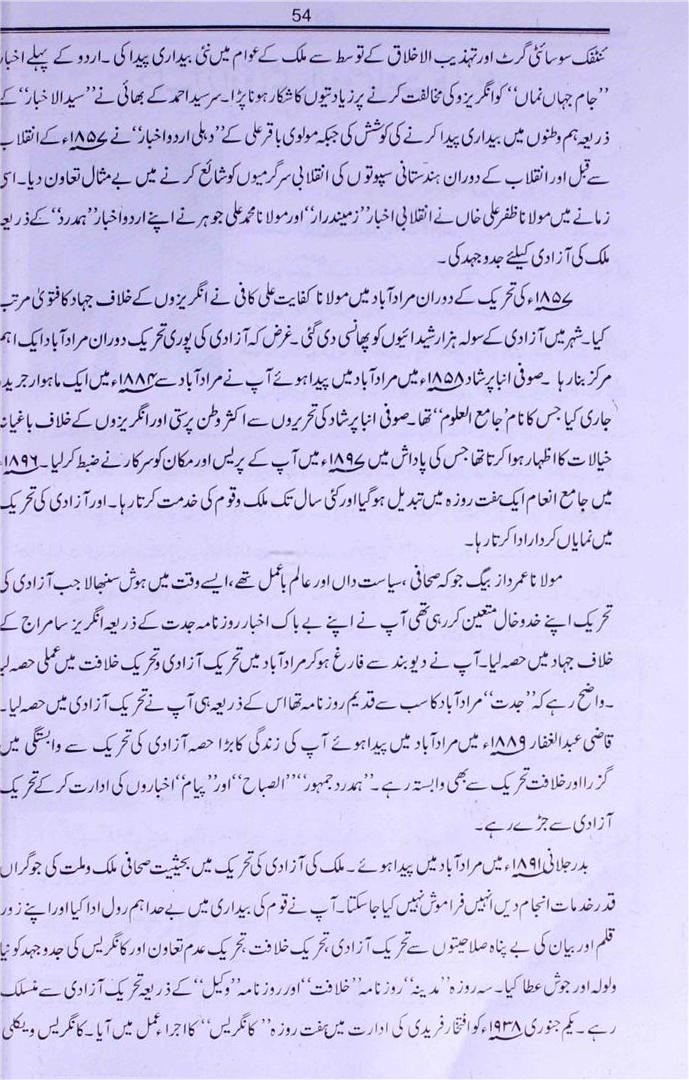 54
ئنٹفک سوسائٹی گزٹ اور تہذیب الاخلاق کے توسط سے ملک کے عوام میں نئی بیداری پیدا کی ۔ اردو کے پہلے اخبار
”جام جہاں نماں“ کو انگریزو کی مخالفت کرنے پر زیادتیوں کا شکار ہونا پڑا۔ سرسید احمد کے بھائی نے ”سید الاخبار“ کے
ذریعہ ہم وطنوں میں بیداری پیدا کرنے کی کوشش کی جبکہ مولوی باقر علی کے ”دہلی اردو اخبار“ نے ۱۸۵۷ء کے انقلاب
سے قبل اور انقلاب کے دوران ہندستانی سپوتوں کی انقلابی سرگرمیوں کو شائع کرنے میں بے مثال تعاون دیا۔ اسی
زمانے میں مولانا ظفر علی خاں نے انقلابی اخبار ”زمیندرار“ اور مولانا محمد علی جوہر نے اپنے اردو اخبار ”ہمدرد“ کے ذریعہ
ملک کی آزادی کیلئے جدوجہد کی ۔
۱۸۵۷ء کی تحریک کے دوران مرادآباد میں مولانا کفایت علی کافی نے انگریزوں کے خلاف جہاد کا فتویٰ مرتب
کیا۔ شہر میں آزادی کے سولہ ہزار شیدائیوں کو پھانسی دی گئی ۔ غرض کہ آزادی کی پوری تحریک دوران مرادآباد ایک اہم
مرکز بنا رہا ۔ صوفی انبا پرشاد ۱۸۵۸ء میں مرادآباد میں پیدا ہوئے آپ نے مرادآباد سے ۱۸۸۴ء میں ایک ماہوار جریدہ
جاری کیا جس کا نام ’جامع العلوم“ تھا۔ صوفی انبا پرشاد کی تحریروں سے اکثر وطن پرستی اور انگریزوں کے خلاف باغیانہ
خیالات کا اظہار ہوا کرتا تھا جس کی پاداش میں ۱۸۹۷ء میں آپ کے پریس اور مکان کو سرکار نے ضبط کر لیا ۔ ۱۸۹۶ء
میں جامع انعام ایک ہفت روزہ میں تبدیل ہو گیا اور کئی سال تک ملک وقوم کی خدمت کرتا رہا۔ اور آزادی کی تحریک
میں نمایاں کردار ادا کرتا رہا۔
مولانا عمر دراز بیگ جو کہ صحافی ، سیاست داں اور عالم باعمل تھے، ایسے وقت میں ہوش سنبھالا جب آزادی کی
تحریک اپنے خدوخال متعین کر رہی تھی آپ نے اپنے بے باک اخبار روزنامہ جدت کے ذریعہ انگریز سامراج کے
خلاف جہاد میں حصہ لیا۔ آپ نے دیوبند سے فارغ ہو کر مرادآباد میں تحریک آزادی و تحریک خلافت میں عملی حصہ لیا
۔ واضح رہے کہ ”جدت“ مرادآباد کا سب سے قدیم روزنامہ تھا اس کے ذریعہ ہی آپ نے تحریک آزادی میں حصہ لیا۔
قاضی عبدالغفار ۱۸۸۹ء میں مرادآباد میں پیدا ہوئے آپ کی زندگی کا بڑا حصہ آزادی کی تحریک سے وابستگی میں
گزرا اور خلافت تحریک سے بھی وابستہ رہے ۔ ”ہمدرد جمہور“ ”الصباح“ اور ”پیام“ اخباروں کی ادارت کر کے تحریک
آزادی سے جڑے رہے۔
بدر جلالی ۱۸۹۱ء میں مرادآباد میں پیدا ہوئے ۔ ملک کی آزادی کی تحریک میں بحیثیت صحافی ملک وملت کی جو گراں
قدر خدمات انجام دیں انہیں فراموش نہیں کیا جا سکتا ۔ آپ نے قوم کی بیداری میں بے حد اہم رول ادا کیا اور اپنے زور
قلم اور بیان کی بے پناہ صلاحیتوں سے تحریک آزادی، تحریک خلافت، تحریک عدم تعاون اور کانگریس کی جدوجہد کو نیا
ولولہ اور جوش عطا کیا۔ سہ روزہ ”مدینہ“ روزنامہ ”خلافت“ اور روزنامہ ”وکیل“ کے ذریعہ تحریک آزادی سے منسلک
رہے ۔ یکم جنوری ۱۹۳۸ء کو افتخار فریدی کی ادارت میں ہفت روزہ ”کانگریس“ کا اجراء عمل میں آیا ۔ کانگریس ویکلی